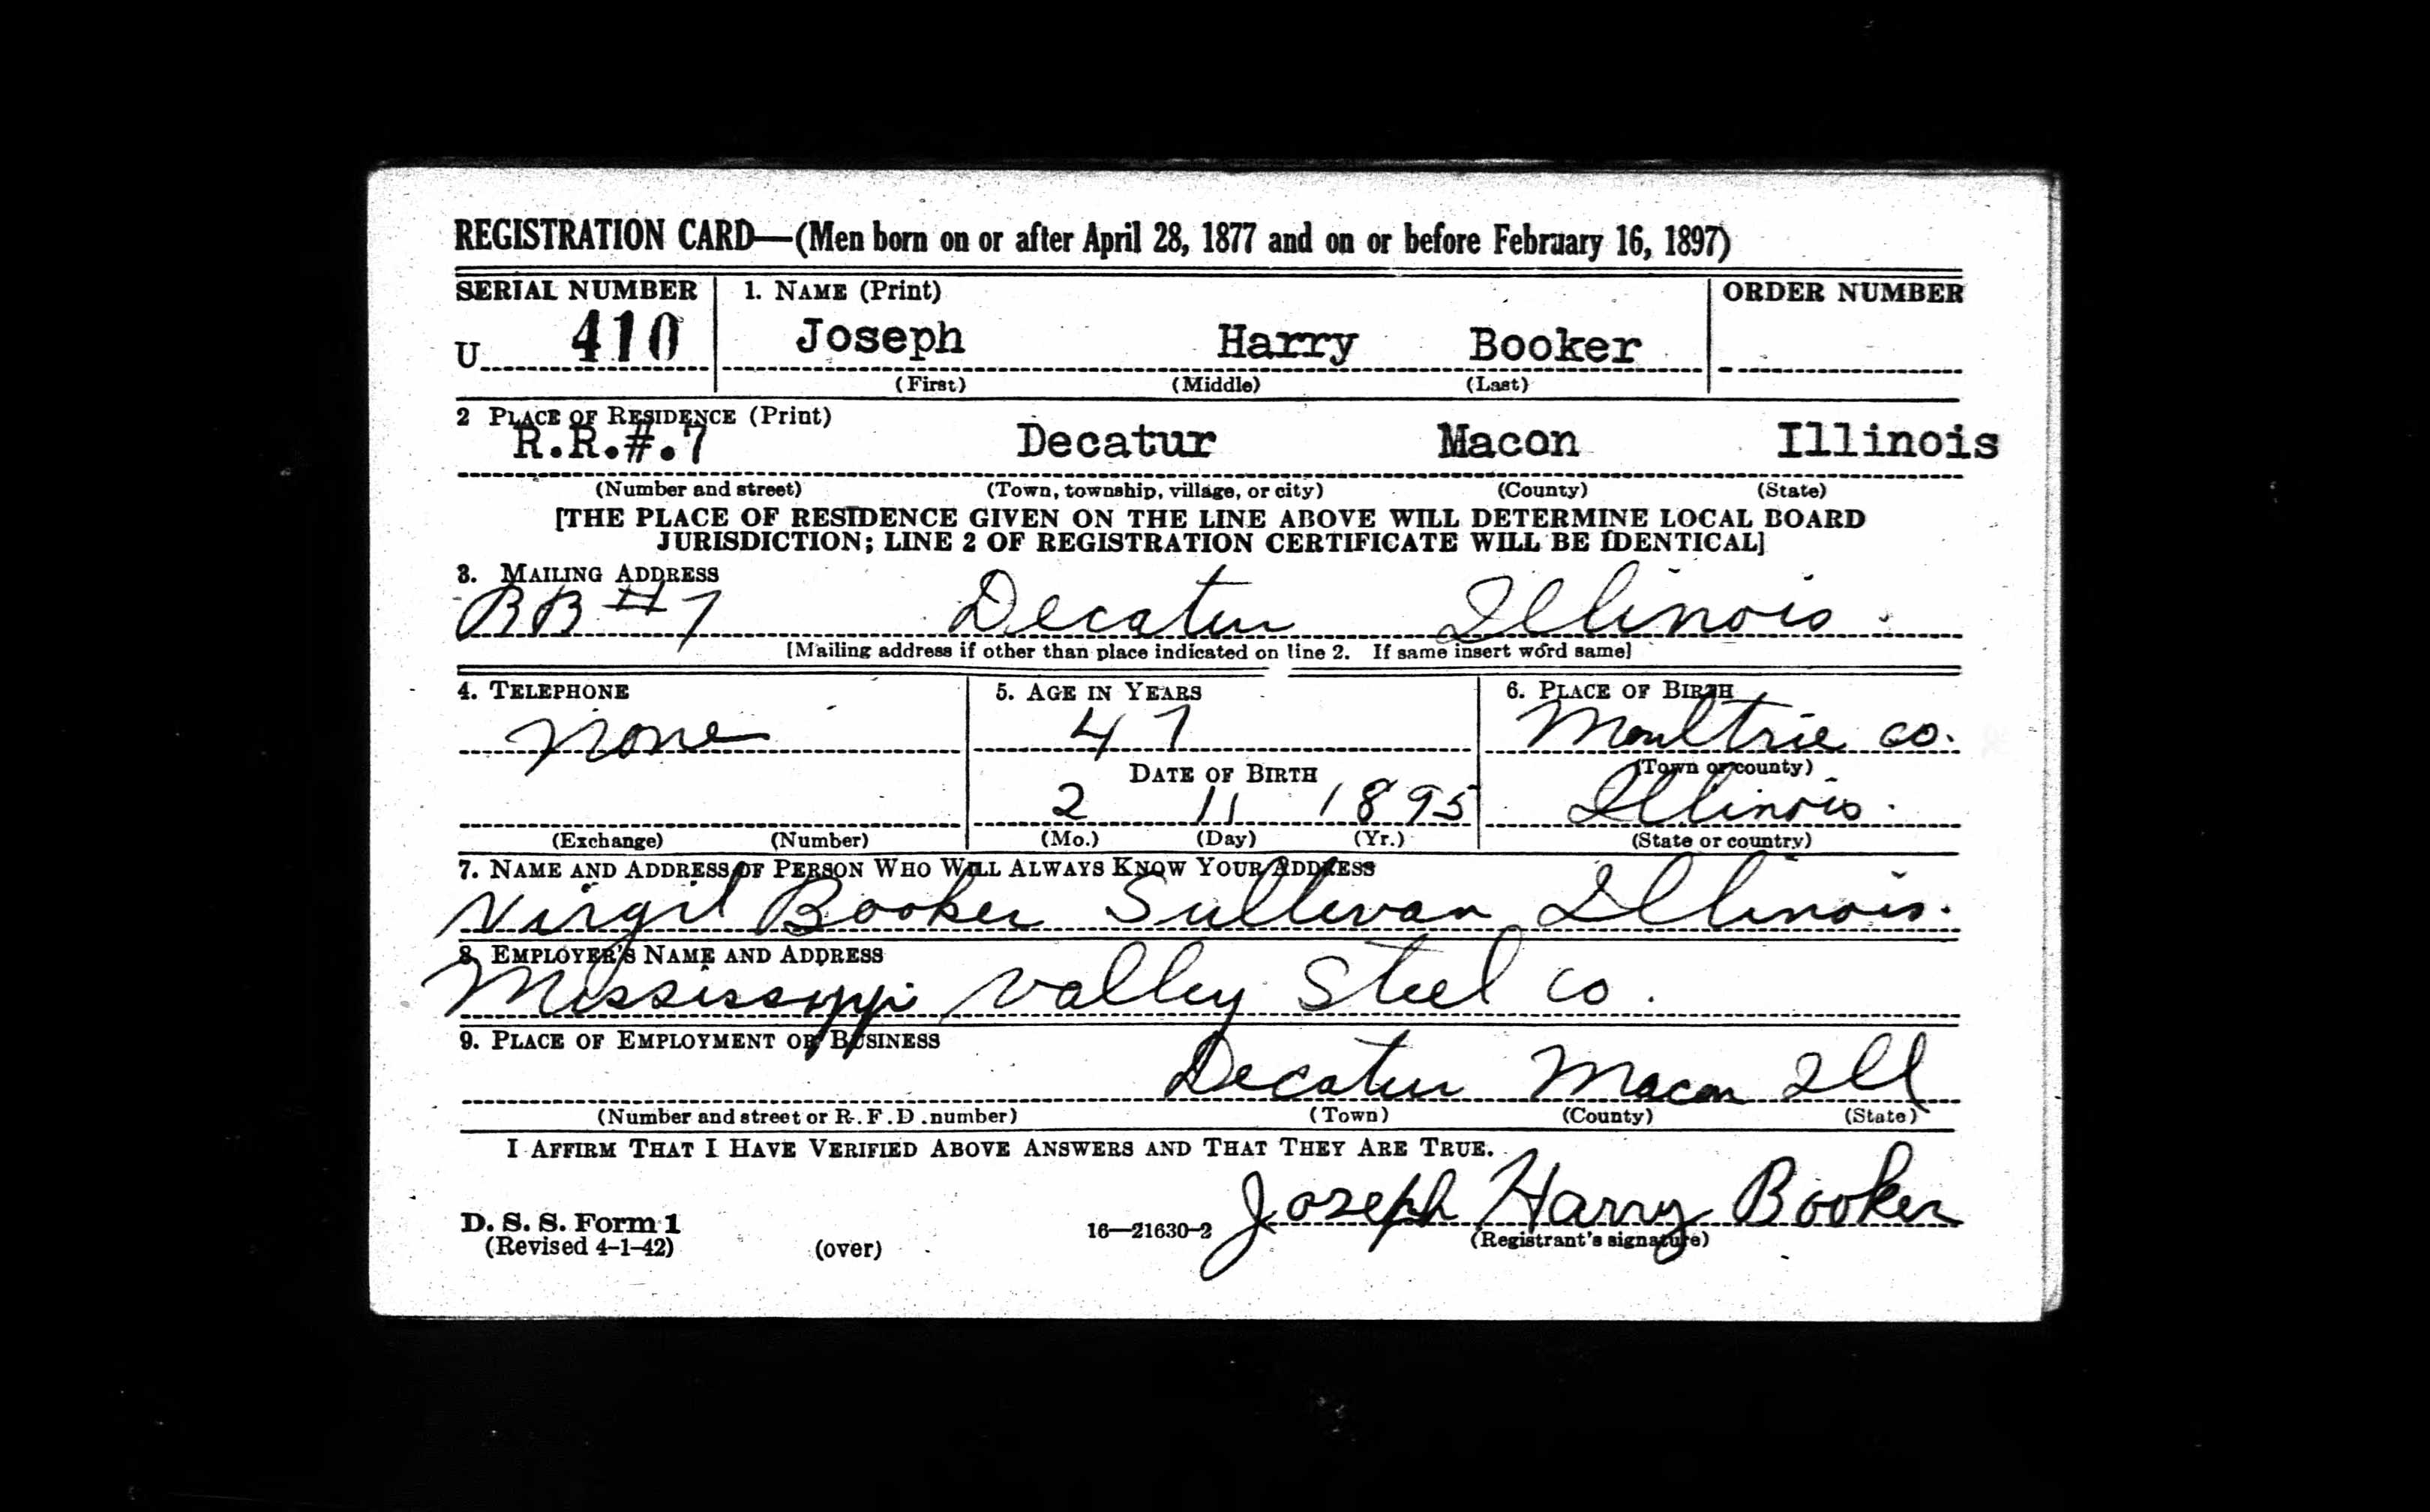 REGISTRATION CARD—(Men born on or after April 28, 1877 and on or before February 16, 1897)
SERIAL NUMBER 1. NAME (Print) ORDER NUMBER
U 410 Joseph Harry Booker
(First) (Middle) (Last)
2 PLACE OF RESIDENCE (Print)
R.R.#.7 Decatur Macon Illinois
(Number and street) (Town, township, village, or city) (County) (State)
[THE PLACE OF RESIDENCE GIVEN ON THE LINE ABOVE WILL DETERMINE LOCAL BOARD
JURISDICTION; LINE 2 OF REGISTRATION CERTIFICATE WILL BE IDENTICAL]
3. MAILING ADDRESS
RR #7 Decatur Illinois.
[Mailing address if other than place indicated on line 2. If same insert word same]
4. TELEPHONE 5. AGE IN YEARS 6. PLACE OF BIRTH
None 47 Moultrie co.
DATE OF BIRTH (Town or county)
2 11 1895 Illinois.
(Exchange) (Number) (Mo.) (Day) (Yr.) (State or country)
7. NAME AND ADDRESS OF PERSON WHO WILL ALWAYS KNOW YOUR ADDRESS
Virgil Booker Sullivan Illinois.
8. EMPLOYER'S NAME AND ADDRESS
Mississyppi Valley Steel Co.
9. PLACE OF EMPLOYMENT OR BUSINESS
Decatur Macon Ill
(Number and street or R. F. D. number) (Town) (County) (State)
I AFFIRM THAT I HAVE VERIFIED ABOVE ANSWERS AND THAT THEY ARE TRUE.
Joseph Harry Booker
D. S. S. Form 1
(Revised 4-1-42) (over) 16—21630-2 (Registrant's signature)